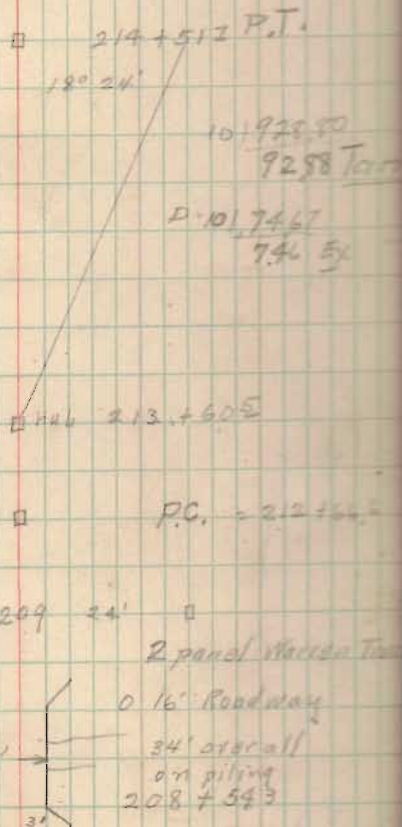 214 + 517 P.T.
18° 24'
10 | 928.80
92.88 Tan
D = 10 | 74.67
7.46 Ex
hub 213 + 605
P.C. = 212 + 66
209 24'
2 panel Warren
0 16' Roadway
34' overall
on piling
208 + 543
3°